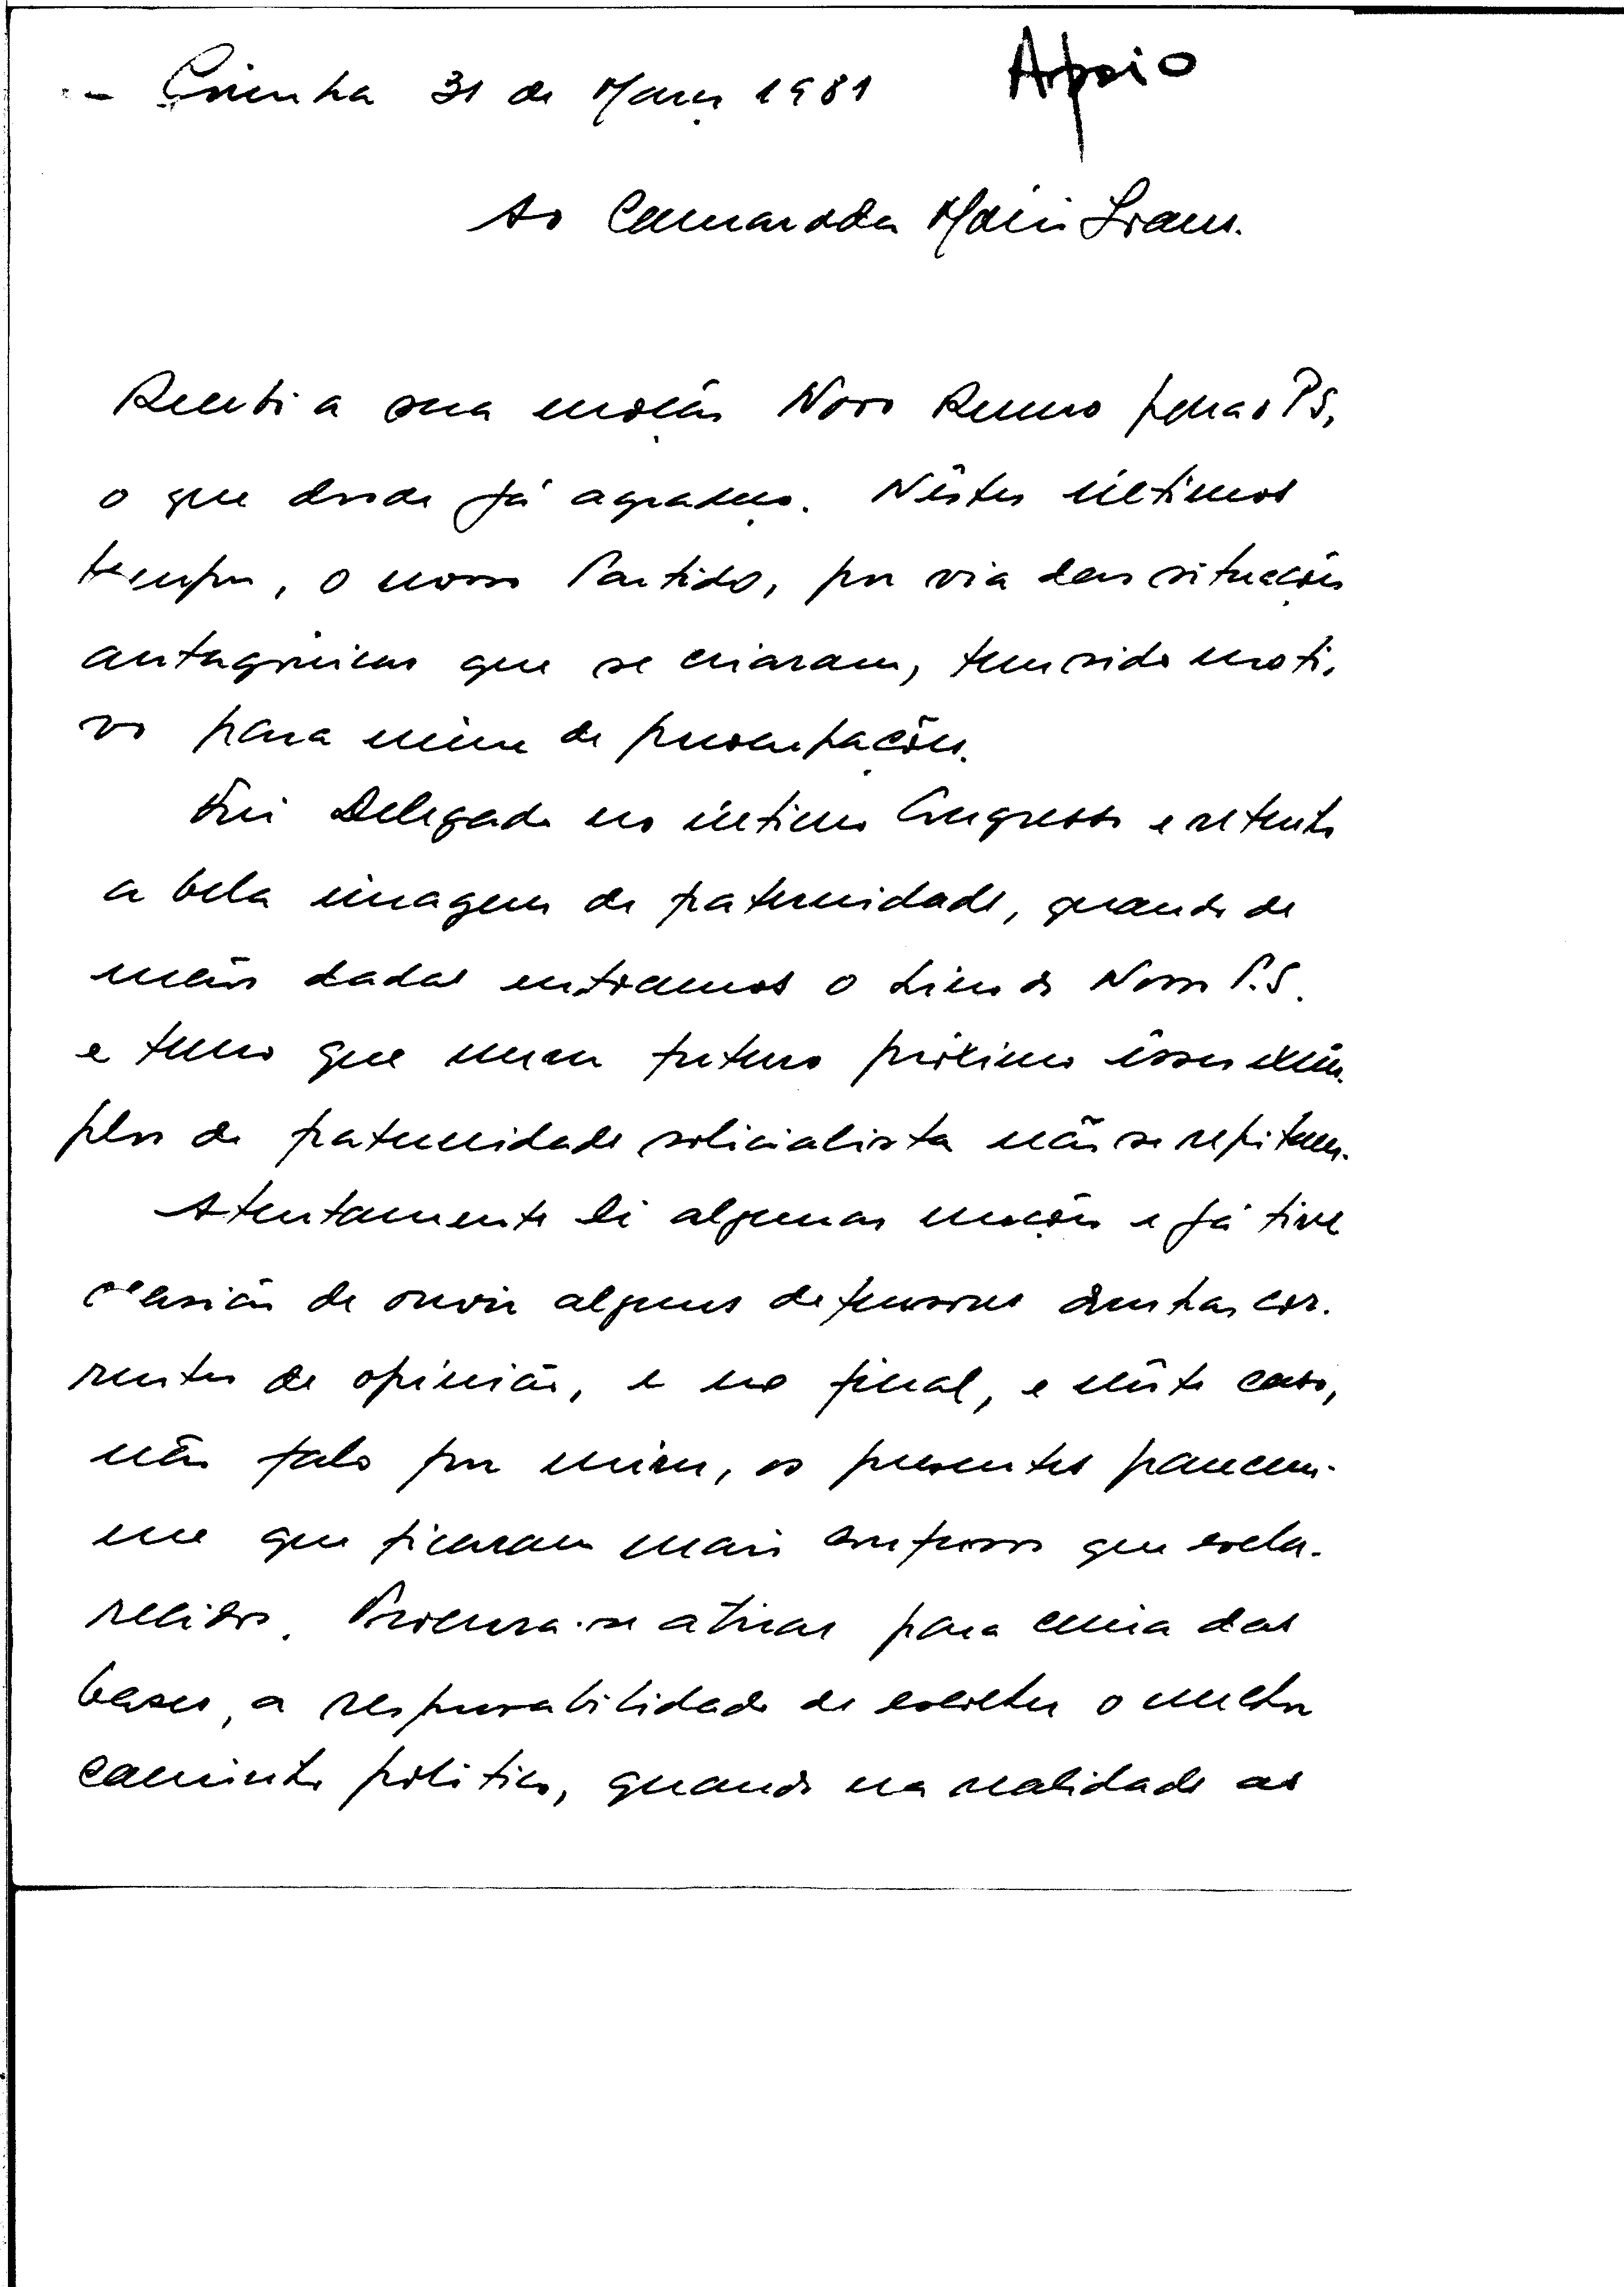 31 de Março 1981 Apoio
Ao Camarada Mário Soares.
Recebi a sua moção Novo Rumo para o PS,
o que desde já agradeço. Nêstes últimos
tempos, o nosso Partido, por via das situações
antagónicas que se criaram, tem sido moti-
vo para mim de preocupações.
Fui Delegado no último Congresso e retenho
a bela imagem de fraternidade, quando de
mãos dadas entoamos o hino do Nosso P.S.
e temo que num futuro próximo êsses exêm-
plos de fraternidade solicialista não se repitam.
Atentamente li algumas moções e já tive
ocasião de ouvir alguns defensores doutras cor-
rentes de opinião, e no final, e nêste caso,
não falo por mim, os presentes parecem-
me que ficaram mais confusos que escla-
recidos. Procura-se atirar para cima das
bases, a responsabilidade de escolher o melhor
caminho politico, quando na realidade as